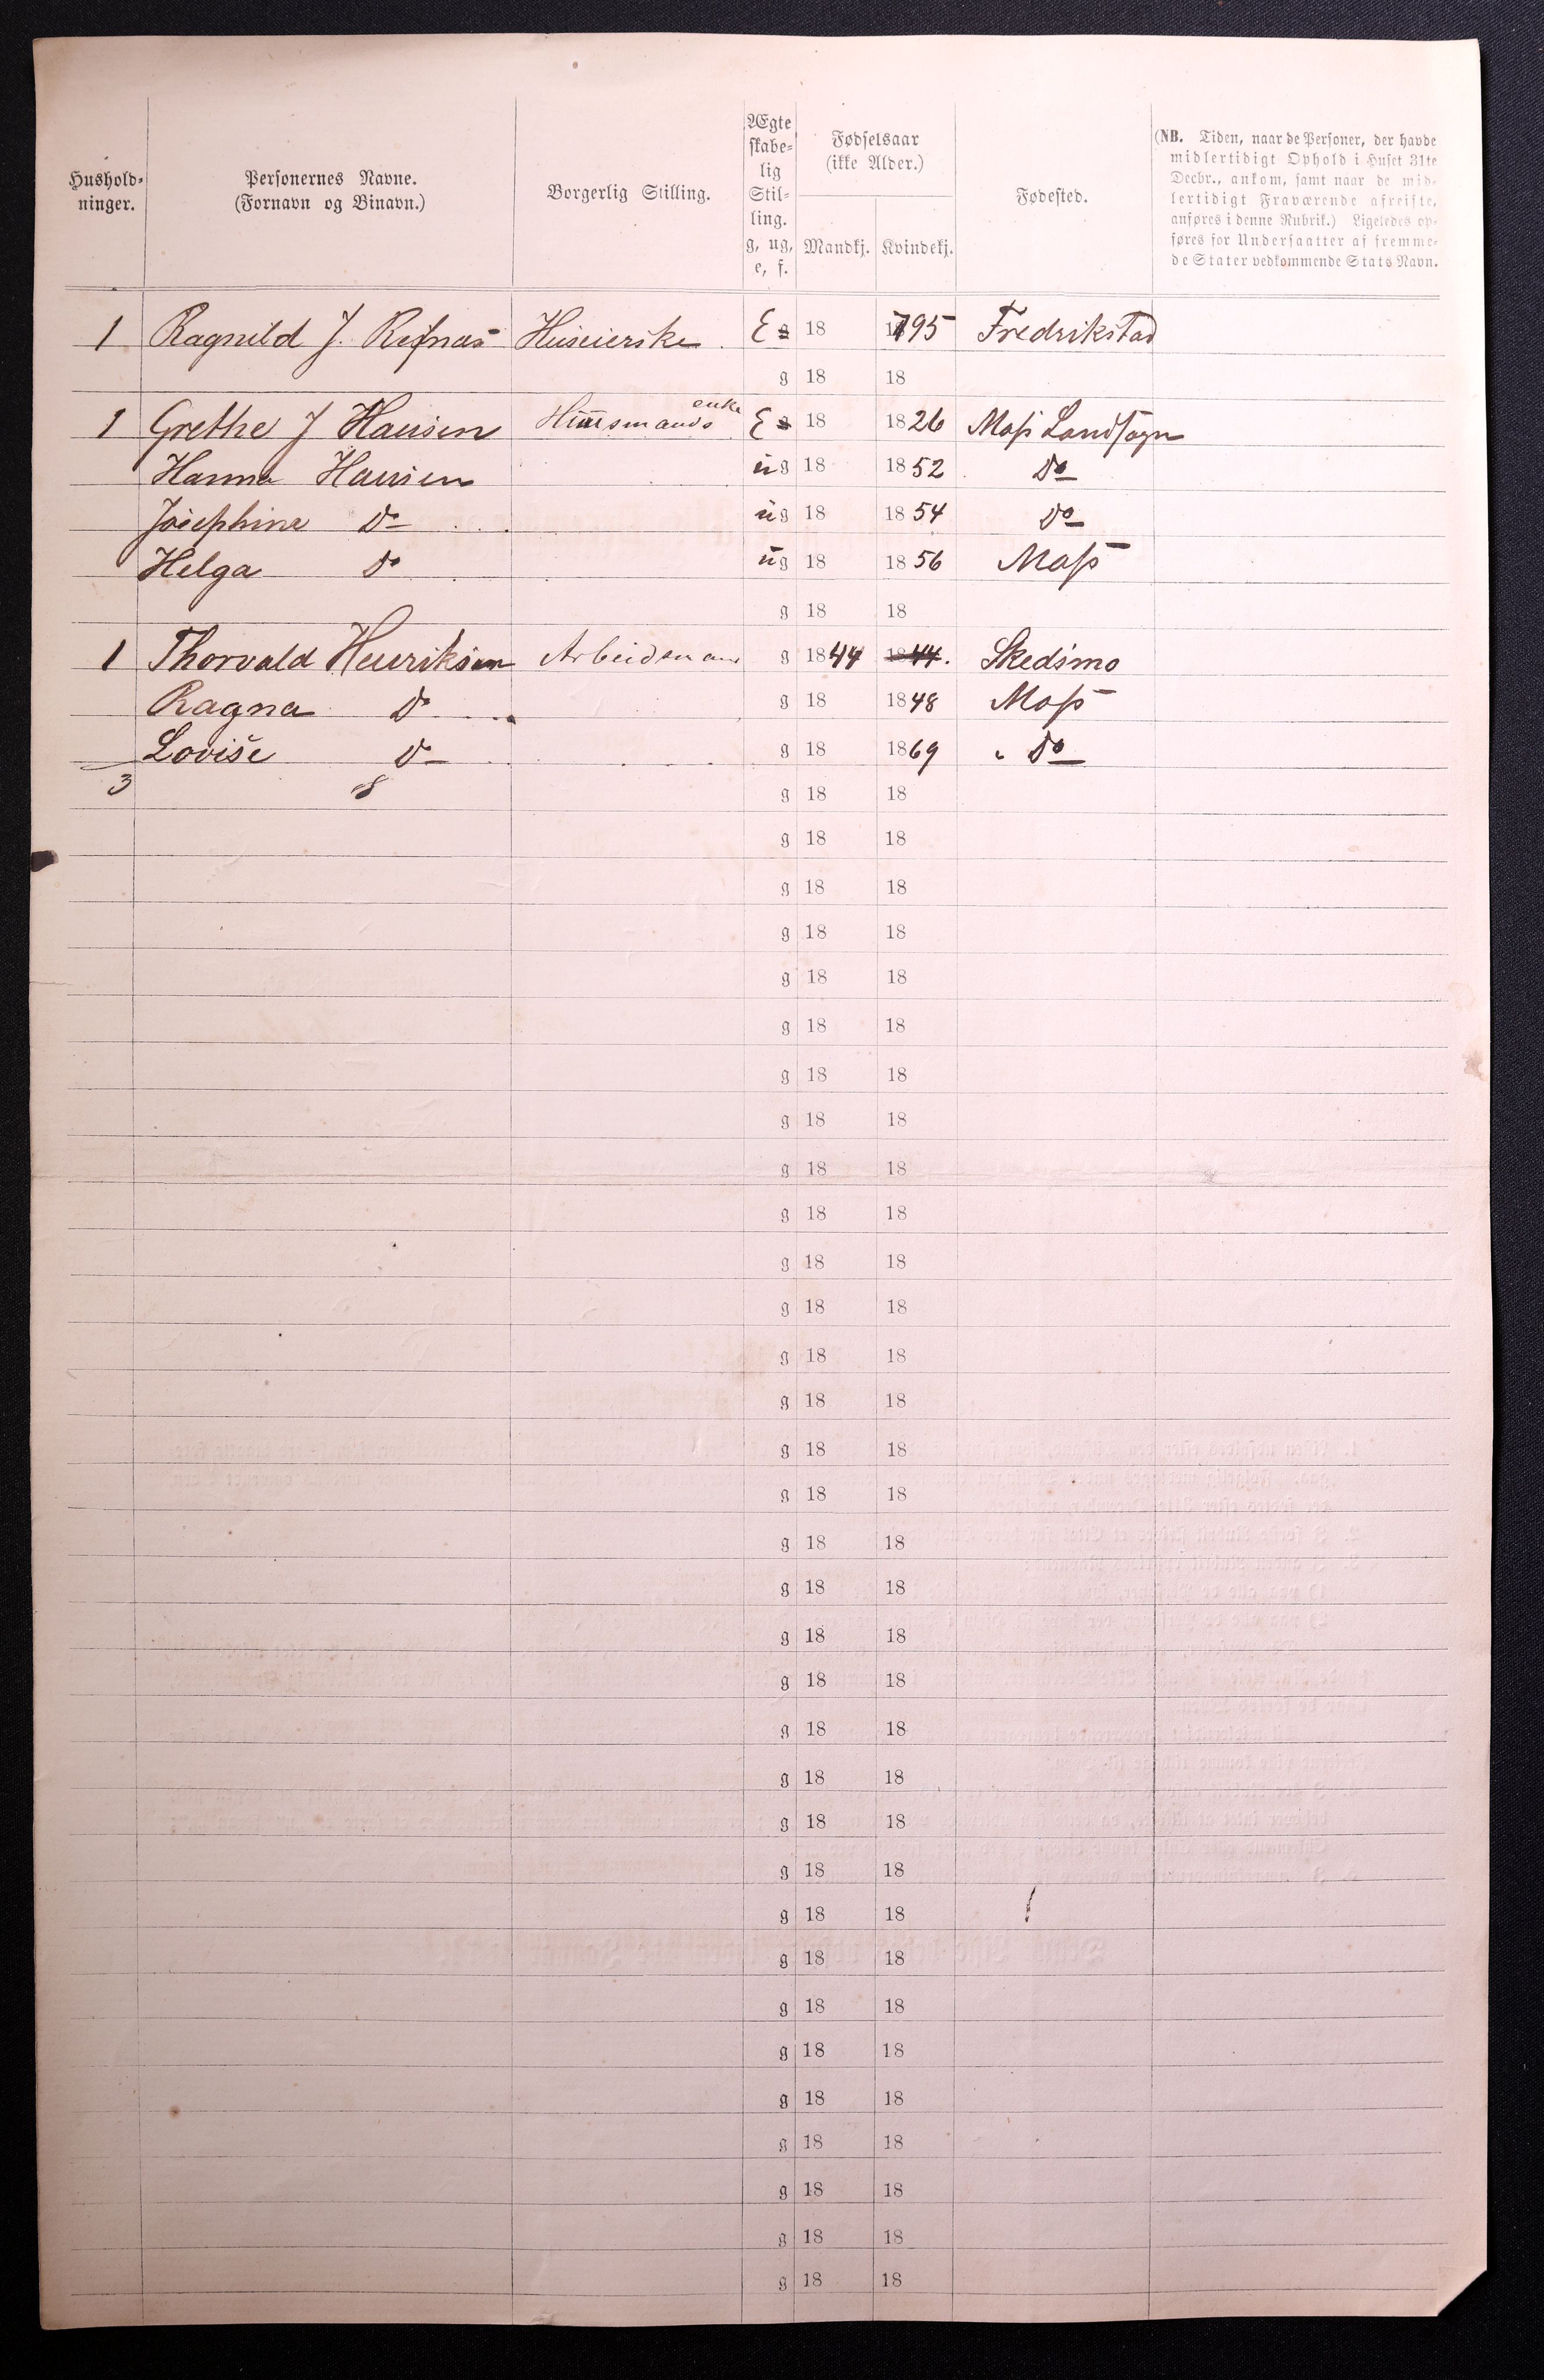 Hushold-
ninger.
Personernes Navne.
(Fornavn og Binavn.)
Borgerlig Stilling.
Ægte
skabe-
lig
Stil-
ling.
g, ug,
e, f.
Fødselsaar
(ikke Alder.)
Mandkj. Kvindekj.
Fødested.
(NB. Tiden, naar de Personer, der havde
midlertidigt Ophold i Huset 31te
Decbr., ankom, samt naar de mid-
lertidigt Fraværende afreiste,
anføres i denne Rubrik.) Ligeledes op-
føres for Undersaatter af fremme-
de Stater vedkommende Stats Navn.
1 Ragnild J. Refnæs Huseierske E g 18 1795 Fredrikstad
g 18 18
1 Grethe J Hansen Huusmands enke E g 18 1826 Moss Landsogn
Hanna Hansen ug 18 1852 Do
Josephine Do ug 18 1854 Do
Helga Do ug 18 1856 Moss
g 18 18
1 Thorvald Henriksen Arbeidsmand g 1844 1844. Skedsmo
Ragna Do g 18 1848 Moss
Lovise Do g 18 1869 " Do
3 8 g 18 18
g 18 18
g 18 18
g 18 18
g 18 18
g 18 18
g 18 18
g 18 18
g 18 18
g 18 18
g 18 18
g 18 18
g 18 18
g 18 18
g 18 18
g 18 18
g 18 18
g 18 18
g 18 18
g 18 18
g 18 18
g 18 18
g 18 18
g 18 18
g 18 18
g 18 18
g 18 18
g 18 18
g 18 18
g 18 18
g 18 18
g 18 18
g 18 18